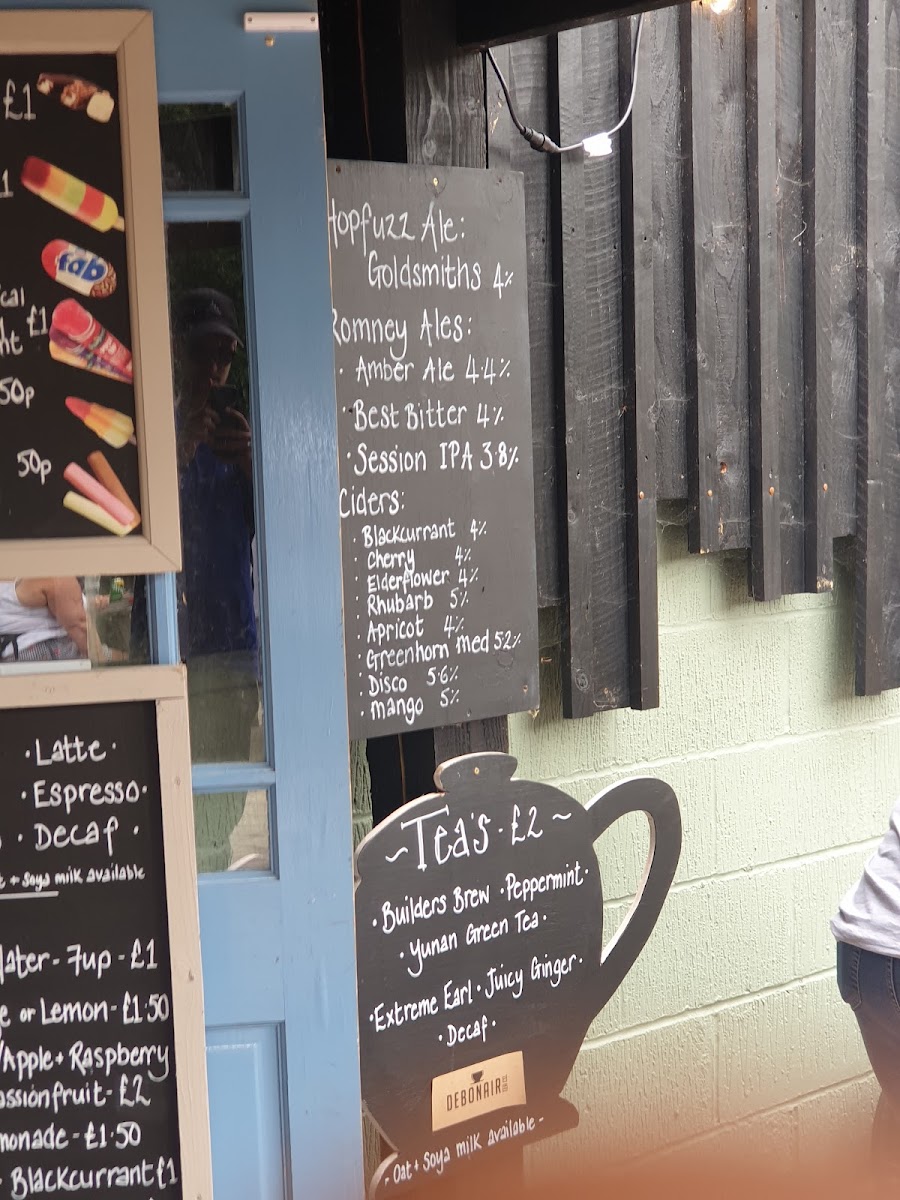 £1
1
fab
ical
ht £1
50p
50p
Hopfuzz Ale:
Goldsmiths 4%
Romney Ales:
· Amber Ale 4.4%
· Best Bitter 4%
· Session IPA 3.8%
Ciders:
· Blackcurrant 4%
· Cherry 4%
· Elderflower 4%
· Rhubarb 5%
· Apricot 4%
· Greenhorn Med 5.2%
· Disco 5.6%
· mango 5%
· Latte ·
· Espresso ·
· Decaf ·
t + Soya milk available
Water - 7up - £1
e or Lemon - £1.50
/Apple + Raspberry
assionfruit - £2
monade - £1.50
· Blackcurrant £1
~ Tea's - £2 ~
· Builders Brew · Peppermint ·
· Yunan Green Tea ·
· Extreme Earl · Juicy Ginger ·
· Decaf ·
DEBONAIR
- Oat + Soya milk available -